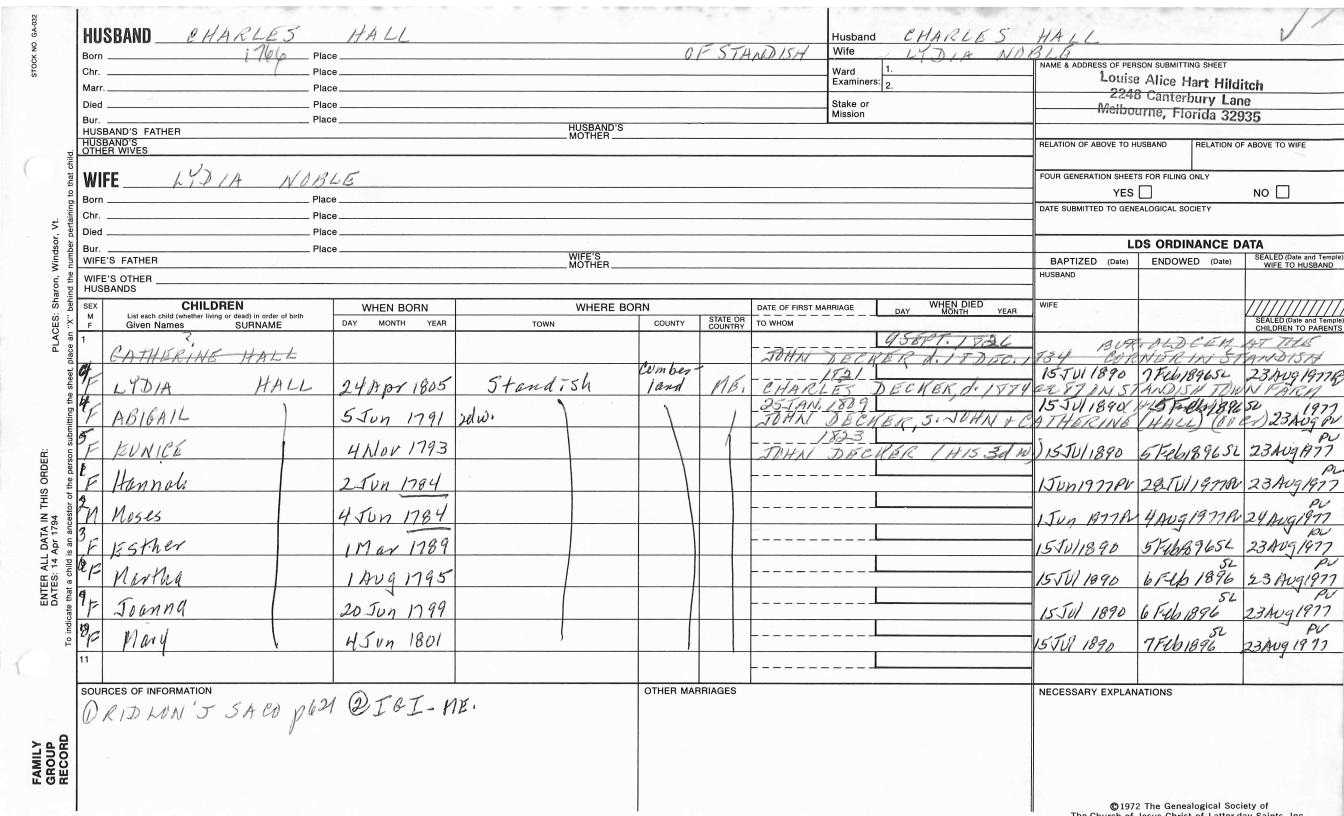 STOCK NO. GA-032
HUSBAND CHARLES HALL
Born 1766 Place OF STANDISH
Chr. Place
Marr. Place
Died Place
Bur. Place
HUSBAND'S FATHER HUSBAND'S MOTHER
HUSBAND'S OTHER WIVES
Husband CHARLES HALL
Wife LYDIA NOBLE
Ward Examiners: 1.
2.
Stake or Mission
NAME & ADDRESS OF PERSON SUBMITTING SHEET
Louise Alice Hart Hilditch
2248 Canterbury Lane
Melbourne, Florida 32935
RELATION OF ABOVE TO HUSBAND RELATION OF ABOVE TO WIFE
FOUR GENERATION SHEETS FOR FILING ONLY
YES NO
DATE SUBMITTED TO GENEALOGICAL SOCIETY
WIFE LYDIA NOBLE
Born Place
Chr. Place
Died Place
Bur. Place
WIFE'S FATHER WIFE'S MOTHER
WIFE'S OTHER HUSBANDS
LDS ORDINANCE DATA
BAPTIZED (Date) ENDOWED (Date) SEALED (Date and Temple) WIFE TO HUSBAND
HUSBAND
WIFE
SEALED (Date and Temple) CHILDREN TO PARENTS
SEX M F
CHILDREN
List each child (whether living or dead) in order of birth
Given Names SURNAME
WHEN BORN
DAY MONTH YEAR
WHERE BORN
TOWN COUNTY STATE OR COUNTRY
DATE OF FIRST MARRIAGE
TO WHOM
WHEN DIED
DAY MONTH YEAR
1 ? CATHERINE HALL 9 SEPT. 1826
JOHN DECKER d. 18 DEC. 1834 BUR. OLD CEM. AT THE CORNER IN STANDISH
F LYDIA HALL 24 Apr 1805 Standish Cumberland ME. 1821 15 Jul 1890 7 Feb 1896 SL 23 Aug 1977
CHARLES DECKER d. 1874 ae 87 IN STANDISH TOWN FARM
4 F ABIGAIL 5 Jun 1791 2d w. 25 JAN. 1809 15 Jul 1890 5 Feb 1896 SL 23 Aug 1977 PV
JOHN DECKER, S. JOHN & CATHERINE (HALL) (over)
5 F EUNICE 4 Nov 1793 1823
JOHN DECKER (HIS 3d w) 15 Jul 1890 5 Feb 1896 SL 23 Aug 1977 PV
1 F Hannah 2 Jun 1784 1 Jun 1977 PV 28 Jul 1977 PV 23 Aug 1977 PV
2 M Moses 4 Jun 1784 1 Jun 1977 PV 4 Aug 1977 PV 24 Aug 1977 PV
3 F Esther 1 Mar 1789 15 Jul 1890 5 Feb 1896 SL 23 Aug 1977 PV
6 F Martha 1 Aug 1795 15 Jul 1890 6 Feb 1896 SL 23 Aug 1977 PV
F Joanna 20 Jun 1799 15 Jul 1890 6 Feb 1896 SL 23 Aug 1977 PV
8 F Mary 4 Jun 1801 15 Jul 1890 7 Feb 1896 SL 23 Aug 1977 PV
11
SOURCES OF INFORMATION
① RIDLON'S SACO p 621 ② IGI - ME.
OTHER MARRIAGES
NECESSARY EXPLANATIONS
ENTER ALL DATA IN THIS ORDER:
DATES: 14 Apr 1794 PLACES: Sharon, Windsor, Vt.
To indicate that a child is an ancestor of the person submitting the sheet, place an "X" behind the number pertaining to that child.
FAMILY GROUP RECORD
©1972 The Genealogical Society of
The Church of Jesus Christ of Latter-day Saints, Inc.